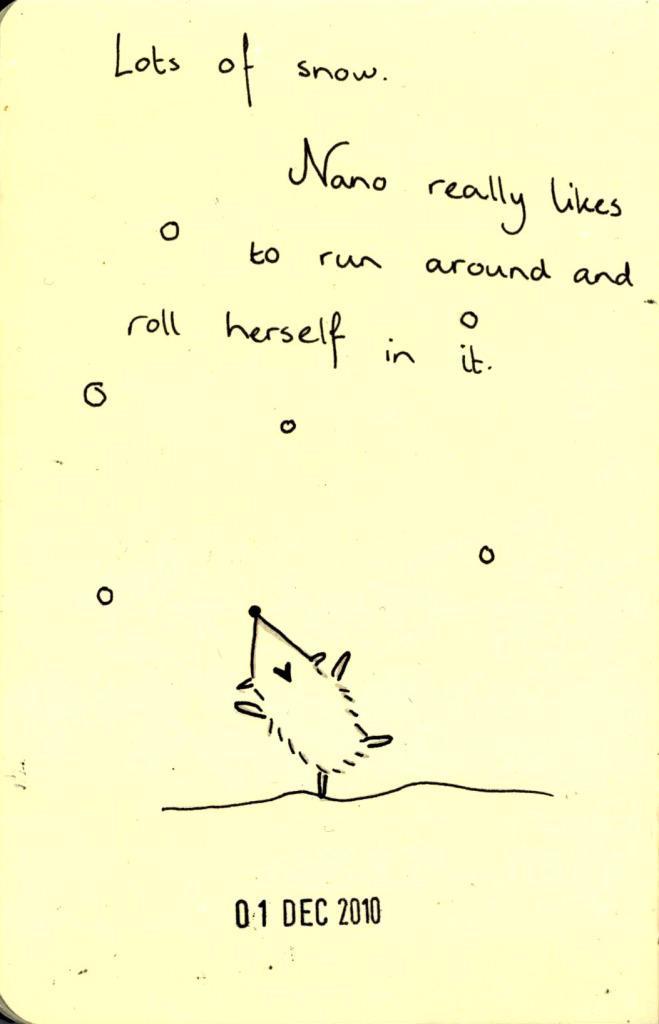 Lots of snow.
Nano really likes
to run around and
roll herself in it.
01 DEC 2010